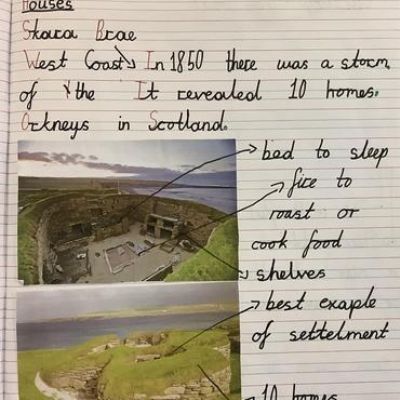 Houses
Skara Brae
West Coast In 1850 there was a storm.
of the It revealed 10 homes.
Orkneys in Scotland.
bed to sleep
fire to
roast or
cook food
shelves
best exaple
of settelment
10 homes